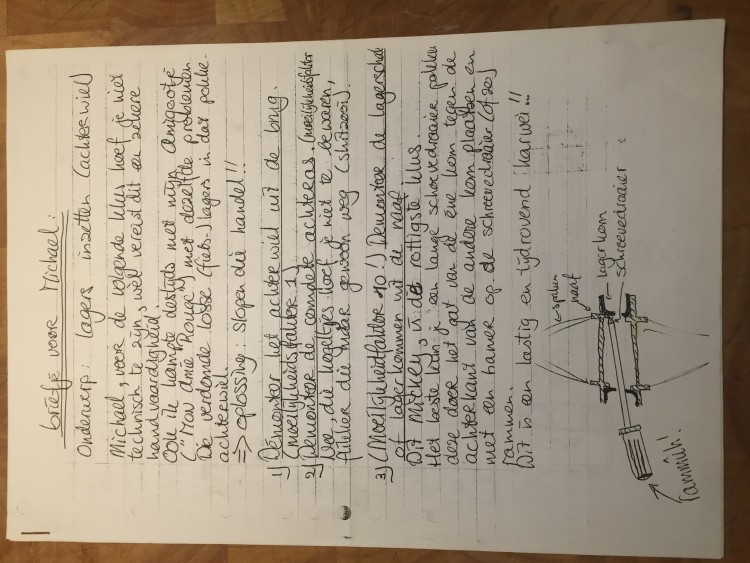 briefje voor Michael:
Onderwerp: lagers inzetten (achterwiel)
Michael, voor de volgende klus hoef je niet
technisch te zijn, wel vereist dit en zekere
handvaardigheid.
Ook ik kampte destijds met mijn Amigootje
("Mon Amie Rouge") met dezelfde problemen
De verdomde losse (fiets-)lagers in dat
achterwiel.
=> oplossing: slopen die handel!!
1) Demonteer het achterwiel uit de brug.
(moeilijkheidsfaktor 1)
2) Demonteer de complete achteras (moeilijkheidsfaktor
die kogeltjes hoef je niet te bewaren,
flikker die maar gewoon weg
3) (Moeilijkheidfaktor 10!) Demonteer de lagerschaal
of lagerkommen uit de naaf
Dit Mickey, is de rottigste klus.
Het beste kun je een lange schroevedraaier pakken
deze door het gat van de ene kom tegen de
achterkant van de andere kom plaatsen en
met een hamer op de schroevedraaier (of zo)
rammen.
Dit is een lastig en tijdrovend karwei!!
spaken
naaf
lagerkom
schroevedraaier
rammûh!